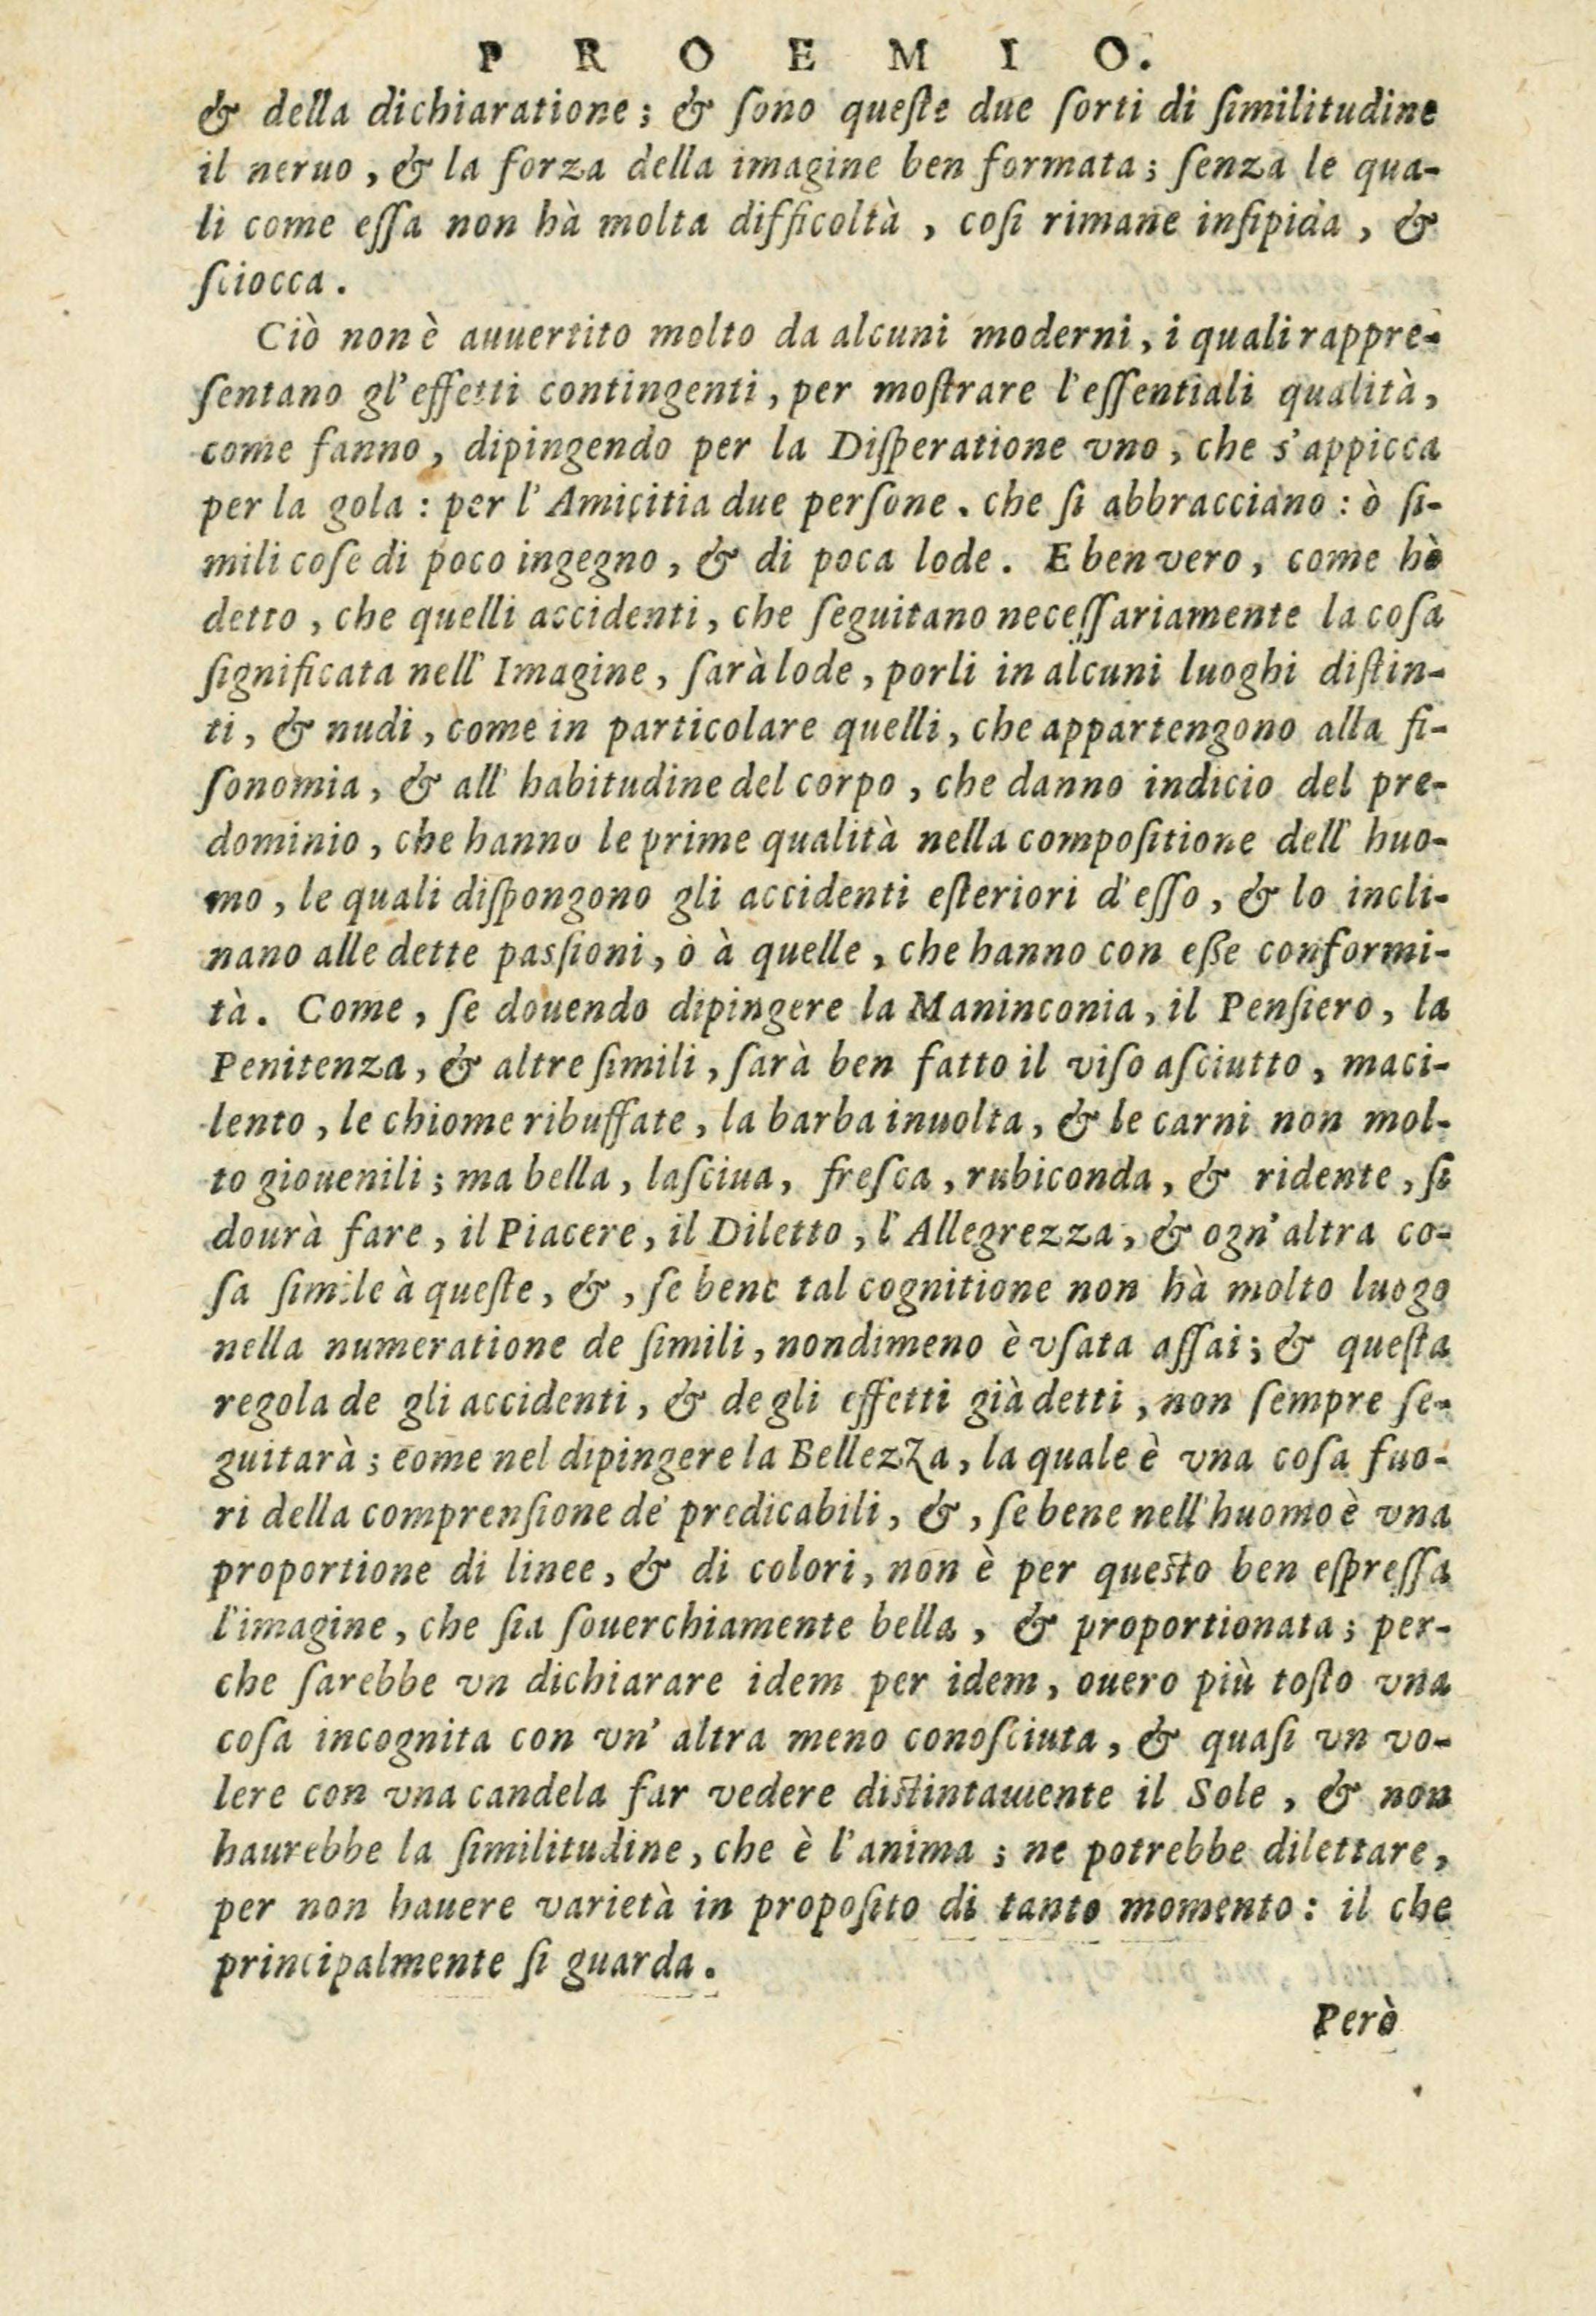 PROEMIO.
& della dichiaratione; & ſono queſte due ſorti di ſimilitudine
il neruo, & la forza della imagine ben formata; ſenza le qua-
li come eſſa non hà molta difficoltà, coſi rimane inſipida, &
ſciocca.
Ciò non è auuertito molto da alcuni moderni, i quali rappre-
ſentano gl'effetti contingenti, per moſtrare l'eſſentiali qualità,
come fanno, dipingendo per la Diſperatione vno, che s'appicca
per la gola: per l'Amicitia due perſone. che ſi abbracciano: ò ſi-
mili coſe di poco ingegno, & di poca lode. E ben vero, come hò
detto, che quelli accidenti, che ſeguitano neceſſariamente la coſa
ſignificata nell'Imagine, ſarà lode, porli in alcuni luoghi diſtin-
ti, & nudi, come in particolare quelli, che appartengono alla fi-
ſonomia, & all'habitudine del corpo, che danno indicio del pre-
dominio, che hanno le prime qualità nella compoſitione dell'huo-
mo, le quali diſpongono gli accidenti eſteriori d'eſſo, & lo incli-
nano alle dette pasſioni, ò à quelle, che hanno con eße conformi-
tà. Come, ſe douendo dipingere la Maninconia, il Penſiero, la
Penitenza, & altre ſimili, ſarà ben fatto il viſo aſciutto, maci-
lento, le chiome ribuffate, la barba inuolta, & le carni non mol-
to giouenili; ma bella, laſciua, freſca, rubiconda, & ridente, ſi
dourà fare, il Piacere, il Diletto, l'Allegrezza, & ogn'altra co-
ſa ſimile à queſte, &, ſe bene tal cognitione non hà molto luogo
nella numeratione de ſimili, nondimeno è vſata aſſai; & queſta
regola de gli accidenti, & de gli effetti già detti, non ſempre ſe-
guitarà; come nel dipingere la Bellezza, la quale è vna coſa fuo-
ri della comprenſione de' predicabili, &, ſe bene nell'huomo è vna
proportione di linee, & di colori, non è per queſto ben eſpreſſa
l'imagine, che ſia ſouerchiamente bella, & proportionata; per-
che ſarebbe vn dichiarare idem per idem, ouero più toſto vna
coſa incognita con vn'altra meno conoſciuta, & quaſi vn vo-
lere con vna candela far vedere diſtintamente il Sole, & non
haurebbe la ſimilitudine, che è l'anima; ne potrebbe dilettare,
per non hauere varietà in propoſito di tanto momento: il che
principalmente ſi guarda.
Però